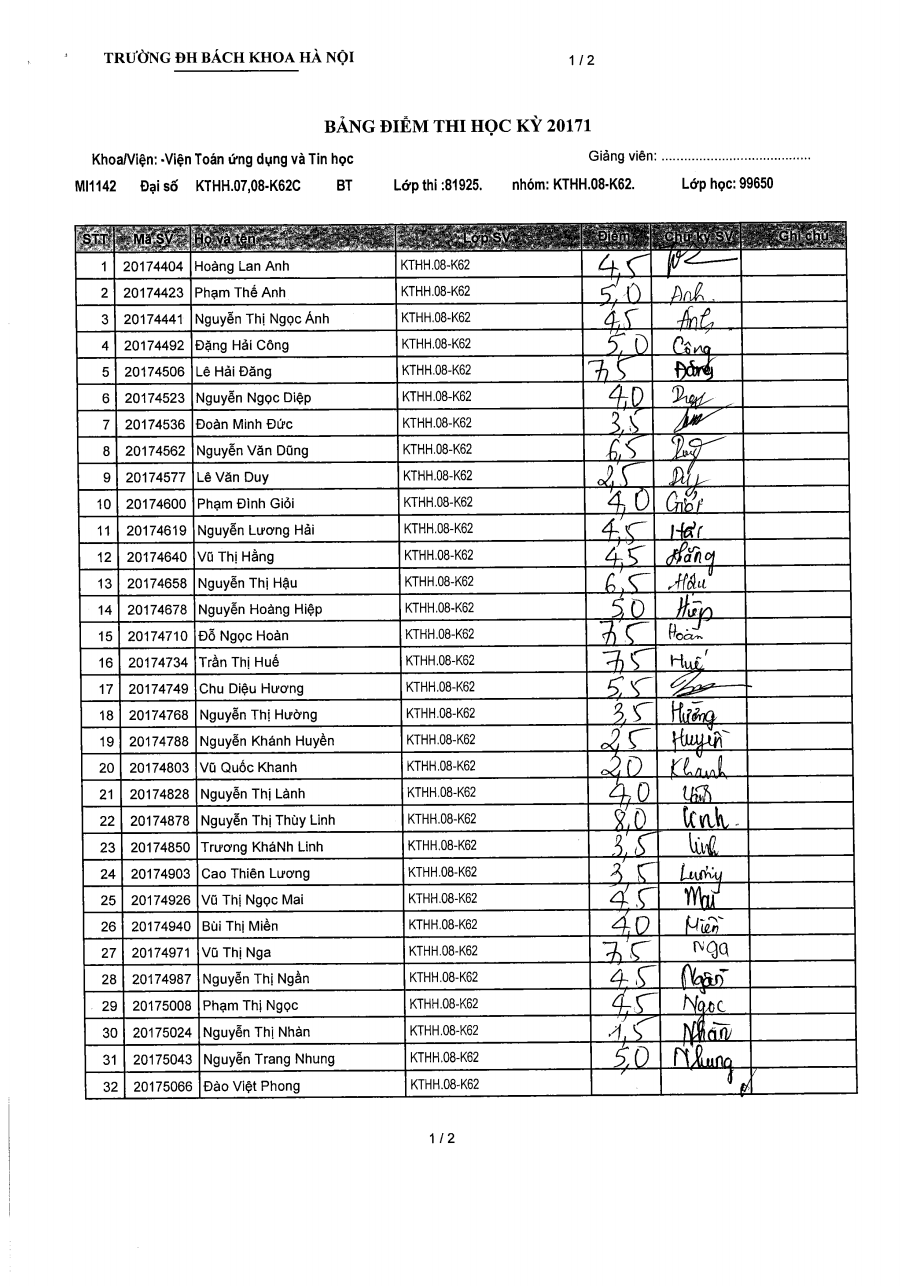 TRƯỜNG ĐH BÁCH KHOA HÀ NỘI 1 / 2
BẢNG ĐIỂM THI HỌC KỲ 20171
Khoa/Viện: -Viện Toán ứng dụng và Tin học Giảng viên: ........................................
MI1142 Đại số KTHH.07,08-K62C BT Lớp thi :81925. nhóm: KTHH.08-K62. Lớp học: 99650
STT Mã SV Họ và tên Lớp SV Điểm Chữ ký SV Ghi chú
1 20174404 Hoàng Lan Anh KTHH.08-K62 4,5
2 20174423 Phạm Thế Anh KTHH.08-K62 5,0 Anh
3 20174441 Nguyễn Thị Ngọc Ánh KTHH.08-K62 4,5
4 20174492 Đặng Hải Công KTHH.08-K62 5,0 Công
5 20174506 Lê Hải Đăng KTHH.08-K62 7,5 Đăng
6 20174523 Nguyễn Ngọc Diệp KTHH.08-K62 4,0
7 20174536 Đoàn Minh Đức KTHH.08-K62 3,5
8 20174562 Nguyễn Văn Dũng KTHH.08-K62 6,5
9 20174577 Lê Văn Duy KTHH.08-K62 2,5 Duy
10 20174600 Phạm Đình Giỏi KTHH.08-K62 4,0 Giỏi
11 20174619 Nguyễn Lương Hải KTHH.08-K62 4,5 Hải
12 20174640 Vũ Thị Hằng KTHH.08-K62 4,5 Hằng
13 20174658 Nguyễn Thị Hậu KTHH.08-K62 6,5 Hậu
14 20174678 Nguyễn Hoàng Hiệp KTHH.08-K62 5,0 Hiệp
15 20174710 Đỗ Ngọc Hoàn KTHH.08-K62 7,5 Hoàn
16 20174734 Trần Thị Huế KTHH.08-K62 7,5 Huế
17 20174749 Chu Diệu Hương KTHH.08-K62 5,5
18 20174768 Nguyễn Thị Hường KTHH.08-K62 3,5 Hường
19 20174788 Nguyễn Khánh Huyền KTHH.08-K62 2,5 Huyền
20 20174803 Vũ Quốc Khanh KTHH.08-K62 2,0 Khanh
21 20174828 Nguyễn Thị Lành KTHH.08-K62 4,0
22 20174878 Nguyễn Thị Thùy Linh KTHH.08-K62 8,0 Linh
23 20174850 Trương KháNh Linh KTHH.08-K62 3,5 Linh
24 20174903 Cao Thiên Lương KTHH.08-K62 3,5 Lương
25 20174926 Vũ Thị Ngọc Mai KTHH.08-K62 4,5 Mai
26 20174940 Bùi Thị Miền KTHH.08-K62 4,0 Miền
27 20174971 Vũ Thị Nga KTHH.08-K62 7,5 Nga
28 20174987 Nguyễn Thị Ngần KTHH.08-K62 4,5 Ngần
29 20175008 Phạm Thị Ngọc KTHH.08-K62 4,5 Ngọc
30 20175024 Nguyễn Thị Nhàn KTHH.08-K62 1,5 Nhàn
31 20175043 Nguyễn Trang Nhung KTHH.08-K62 5,0 Nhung
32 20175066 Đào Việt Phong KTHH.08-K62
1 / 2